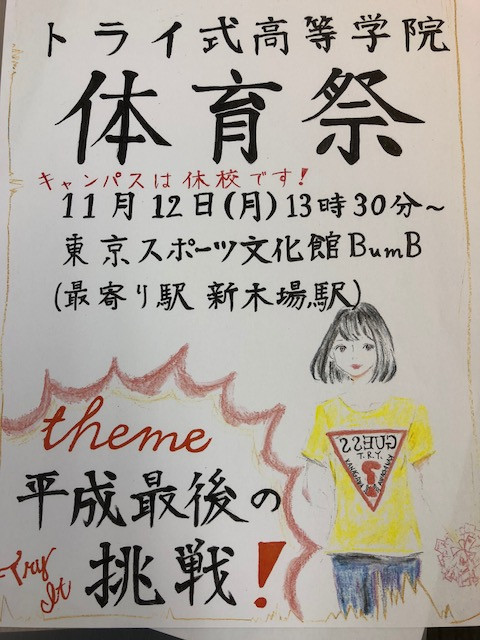 トライ式高等学院
体育祭
キャンパスは休校です!
11月12日(月)13時30分~
東京スポーツ文化館BumB
(最寄り駅 新木場駅)
theme
平成最後の
挑戦!
Try
It
GUESS
T.R.Y.